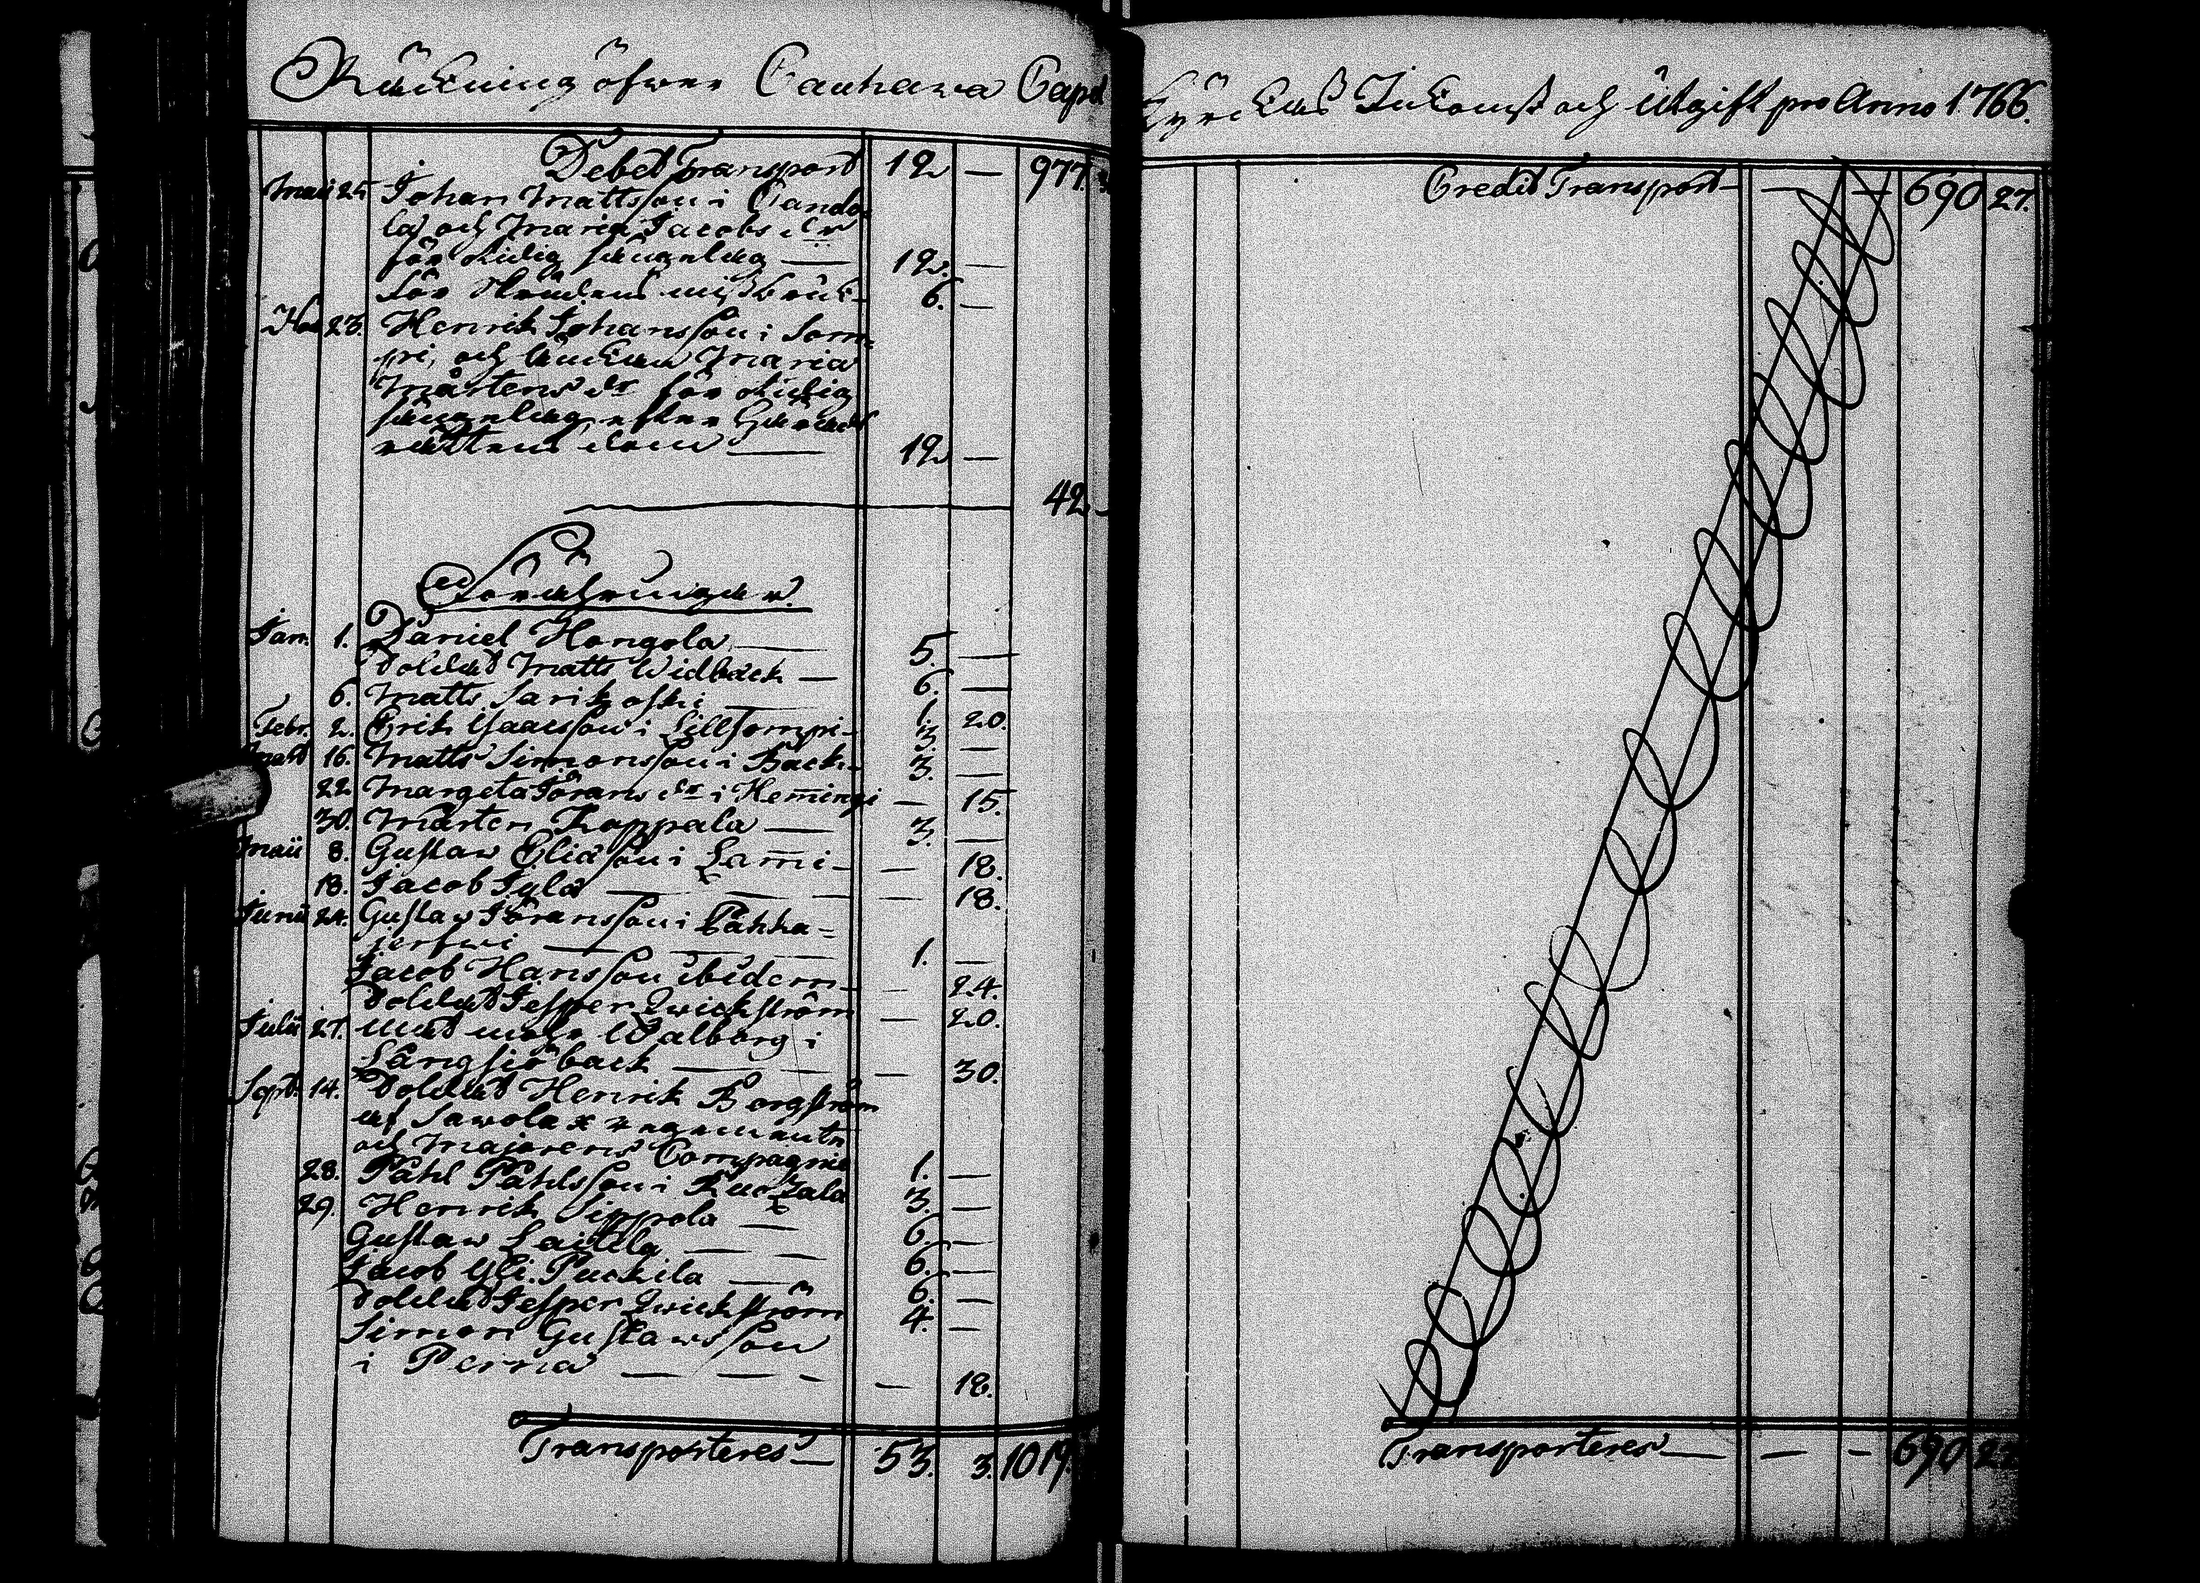 Räkning öfwer Cauhava Capel
Kyrckas Inkomst och Utgift pro Anno 1766.
Debet Transport 12 — 977.
Maii 25. Johan Mattsson i Cando
la och Maria Jacobs dr
för otidig sängelag — 12. —
för Brudens missbruk 6. —
23. Henrik Johansson i Som=
pi, och änckan Maria
Mårtens dr för otidig
sängelag, efter Härads
rättens dom — 12 —
42
Föräringar.
Jan. 1. Daniel Hongola — 5. —
Soldat Matts Widbäck — 6. —
6. Matts Sarikoski — 1. 20.
Febr. 2. Erik Isaacsson i Lillsompi — 3. —
Mart 16. Matts Simonsson i Back — 3. —
22 Margeta Jörans dr i Hemingi — 15.
30. Mårten Koppala — 3. —
Maii 8. Gustaw Eliasson i Lammi — — 18.
18. Jacob Jylä — — — 18.
Junii 24. Gustaw Jöransson i Pahka=
jerfwi — 1. —
Jacob Hansson ibidem — — 24.
Soldat Jesper Qvickström — 20.
Julii 27. Walborg i
Långsjöback — — — 30.
Sept. 14. Soldat Henrik Borgström
af Sawolax regemente
och Majorens Compagnie 1. —
28. Påhl Påhlsson i Ruotzala 3. —
29. Henrik Sippola — 6. —
Gustaw Laitila — — 6. —
Jacob Eli. Puckila — 6. —
Soldat Jesper Qvickström 4. —
Simon Gustawsson
i Perna — — — 18.
Transporteres — 53. 3. 1019.
Credit Transport — — — 690 27.
Transporteres — — — 690 27.